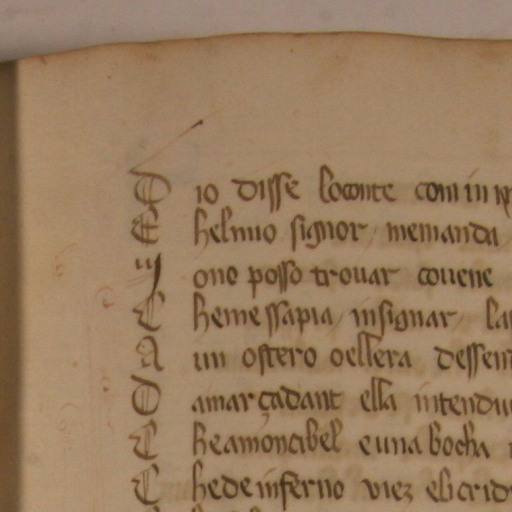 D io disse loconte com in
C helmio signor memanda
N one posso trovar covene
C heme ssapia insignar la
A un ostero oellera dessen
D amarçadant ella intendu
C heamoncibel euna bocha
C hede inferno viez eb crid